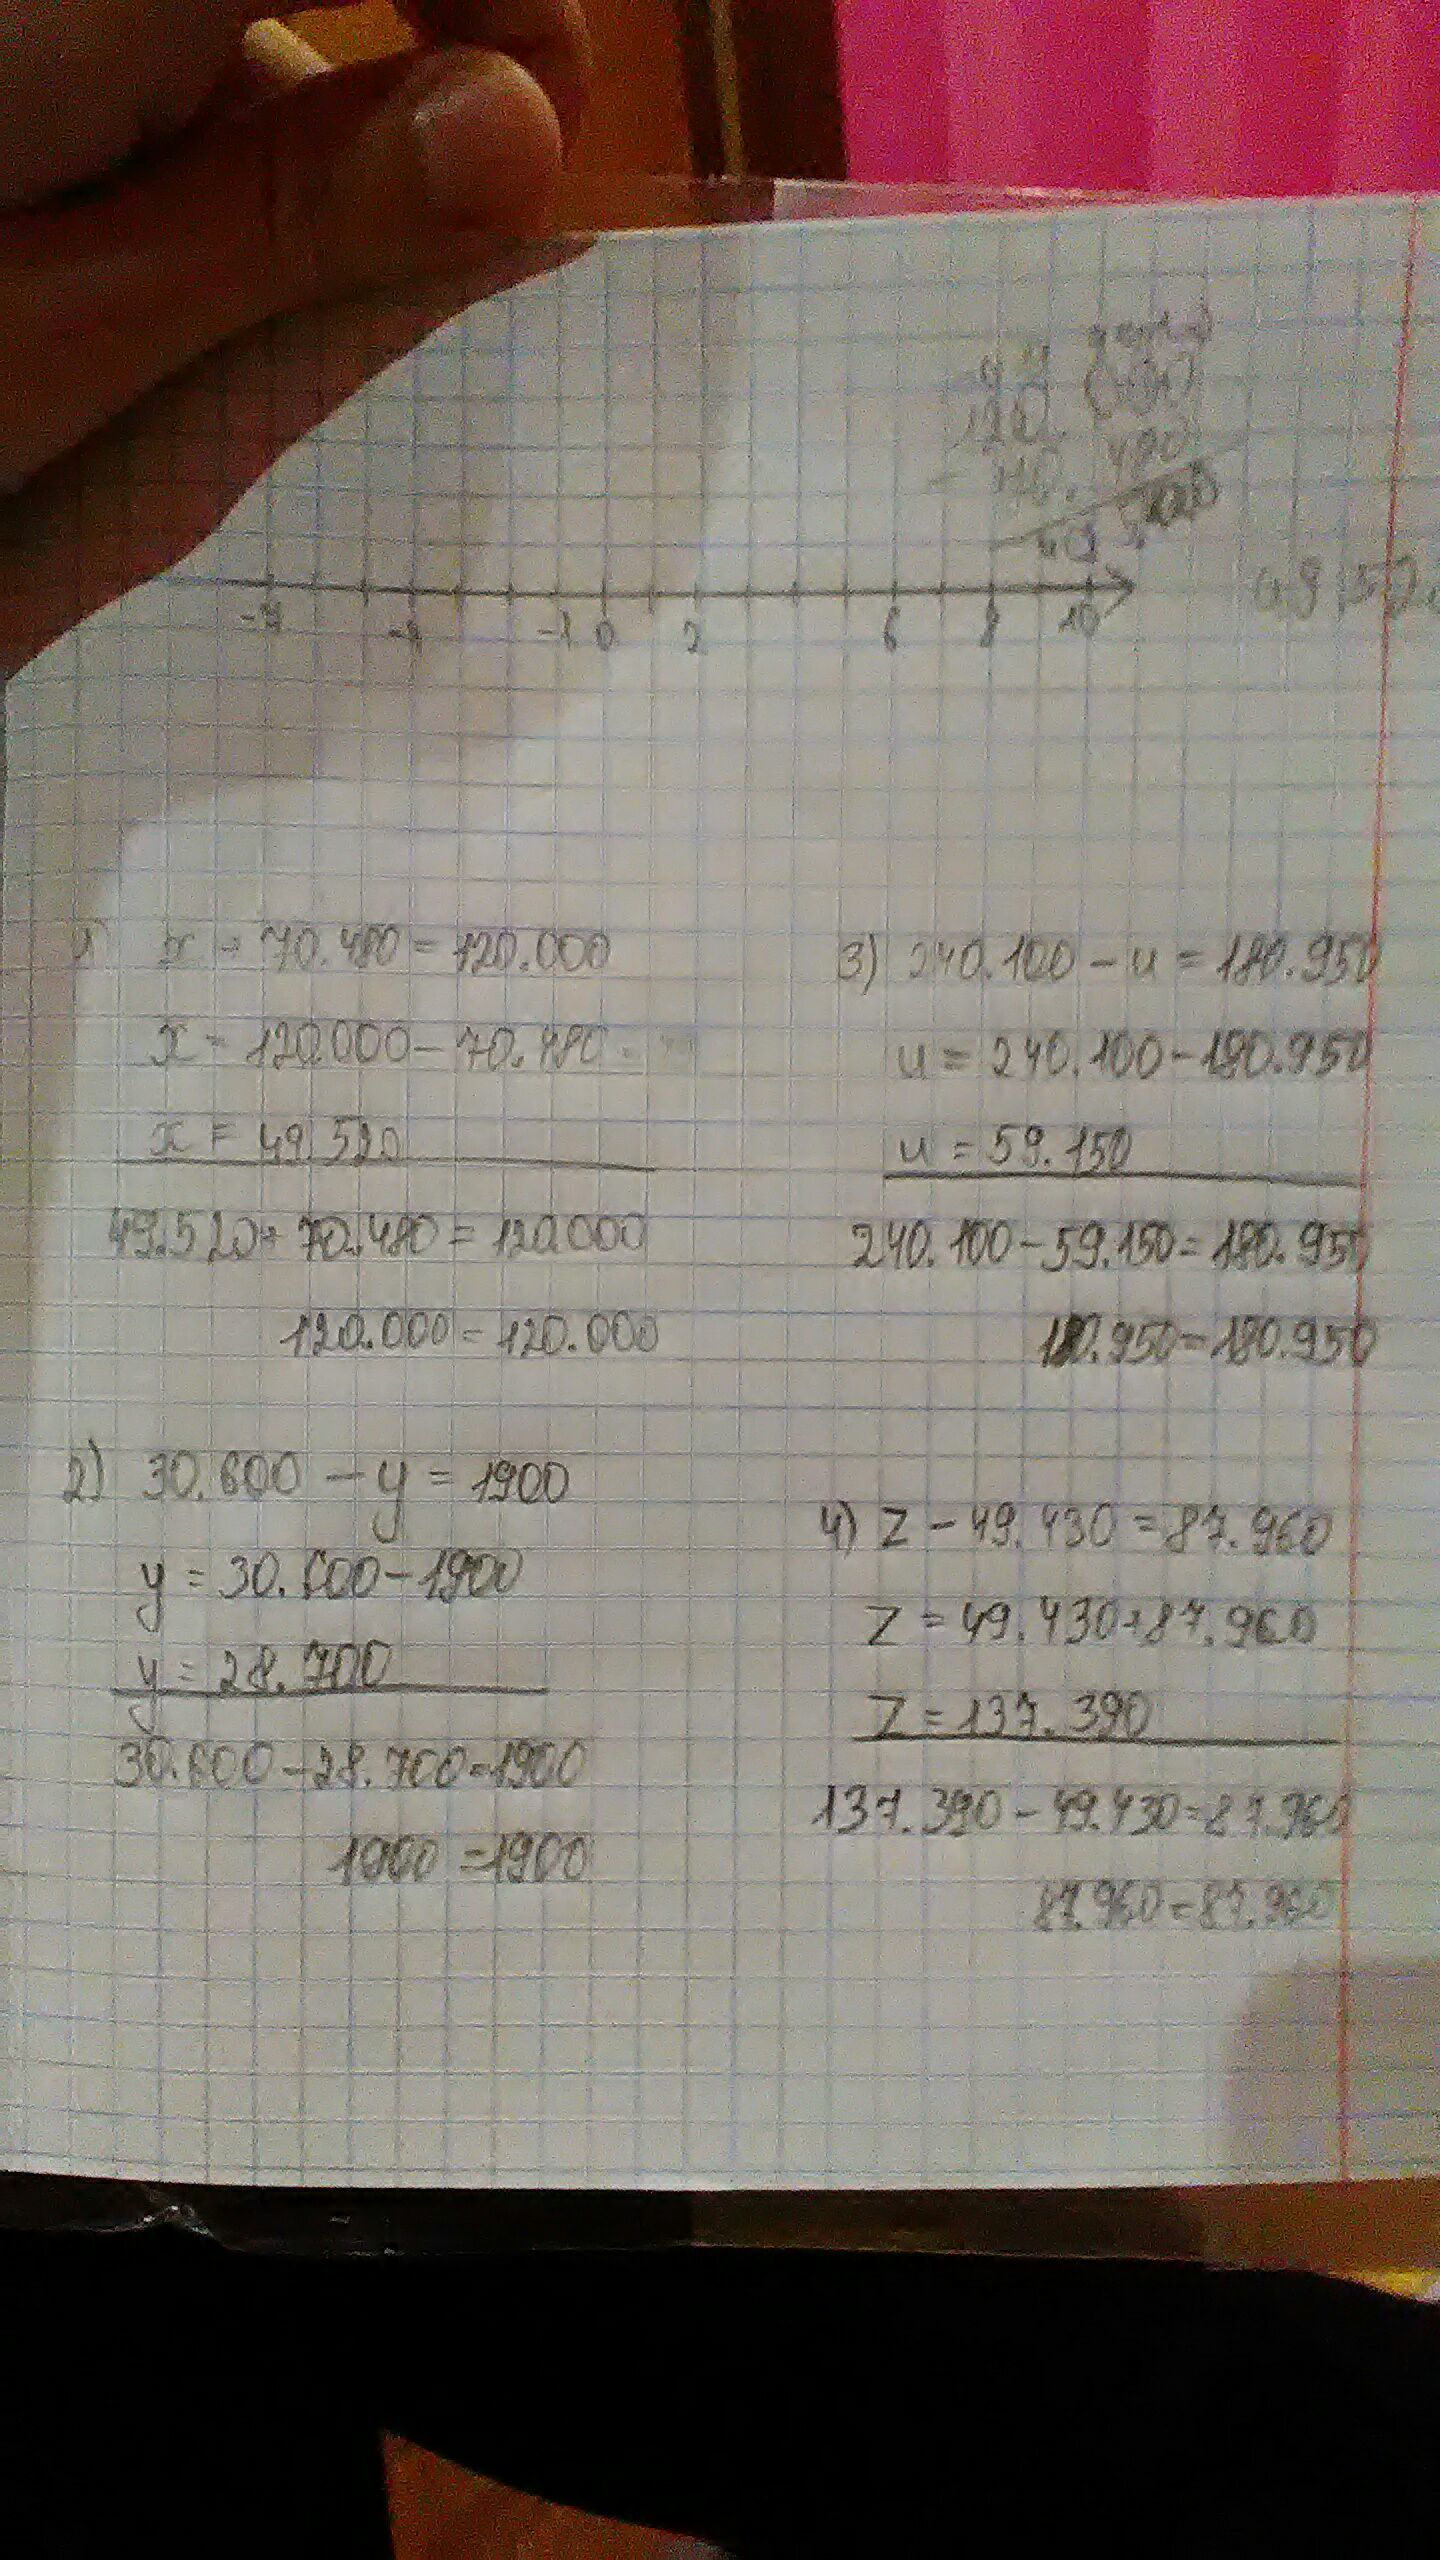 -7 -4 -1 0 2 6 8 10
1) x + 70.480 = 120.000
x = 120.000 - 70.480
x = 49.520
49.520 + 70.480 = 120.000
120.000 = 120.000
2) 30.600 - y = 1900
y = 30.600 - 1900
y = 28.700
30.600 - 28.700 = 1900
1900 = 1900
3) 240.100 - u = 180.950
u = 240.100 - 180.950
u = 59.150
240.100 - 59.150 = 180.950
180.950 = 180.950
4) z - 49.430 = 87.960
z = 49.430 + 87.960
z = 137.390
137.390 - 49.430 = 87.960
87.960 = 87.960